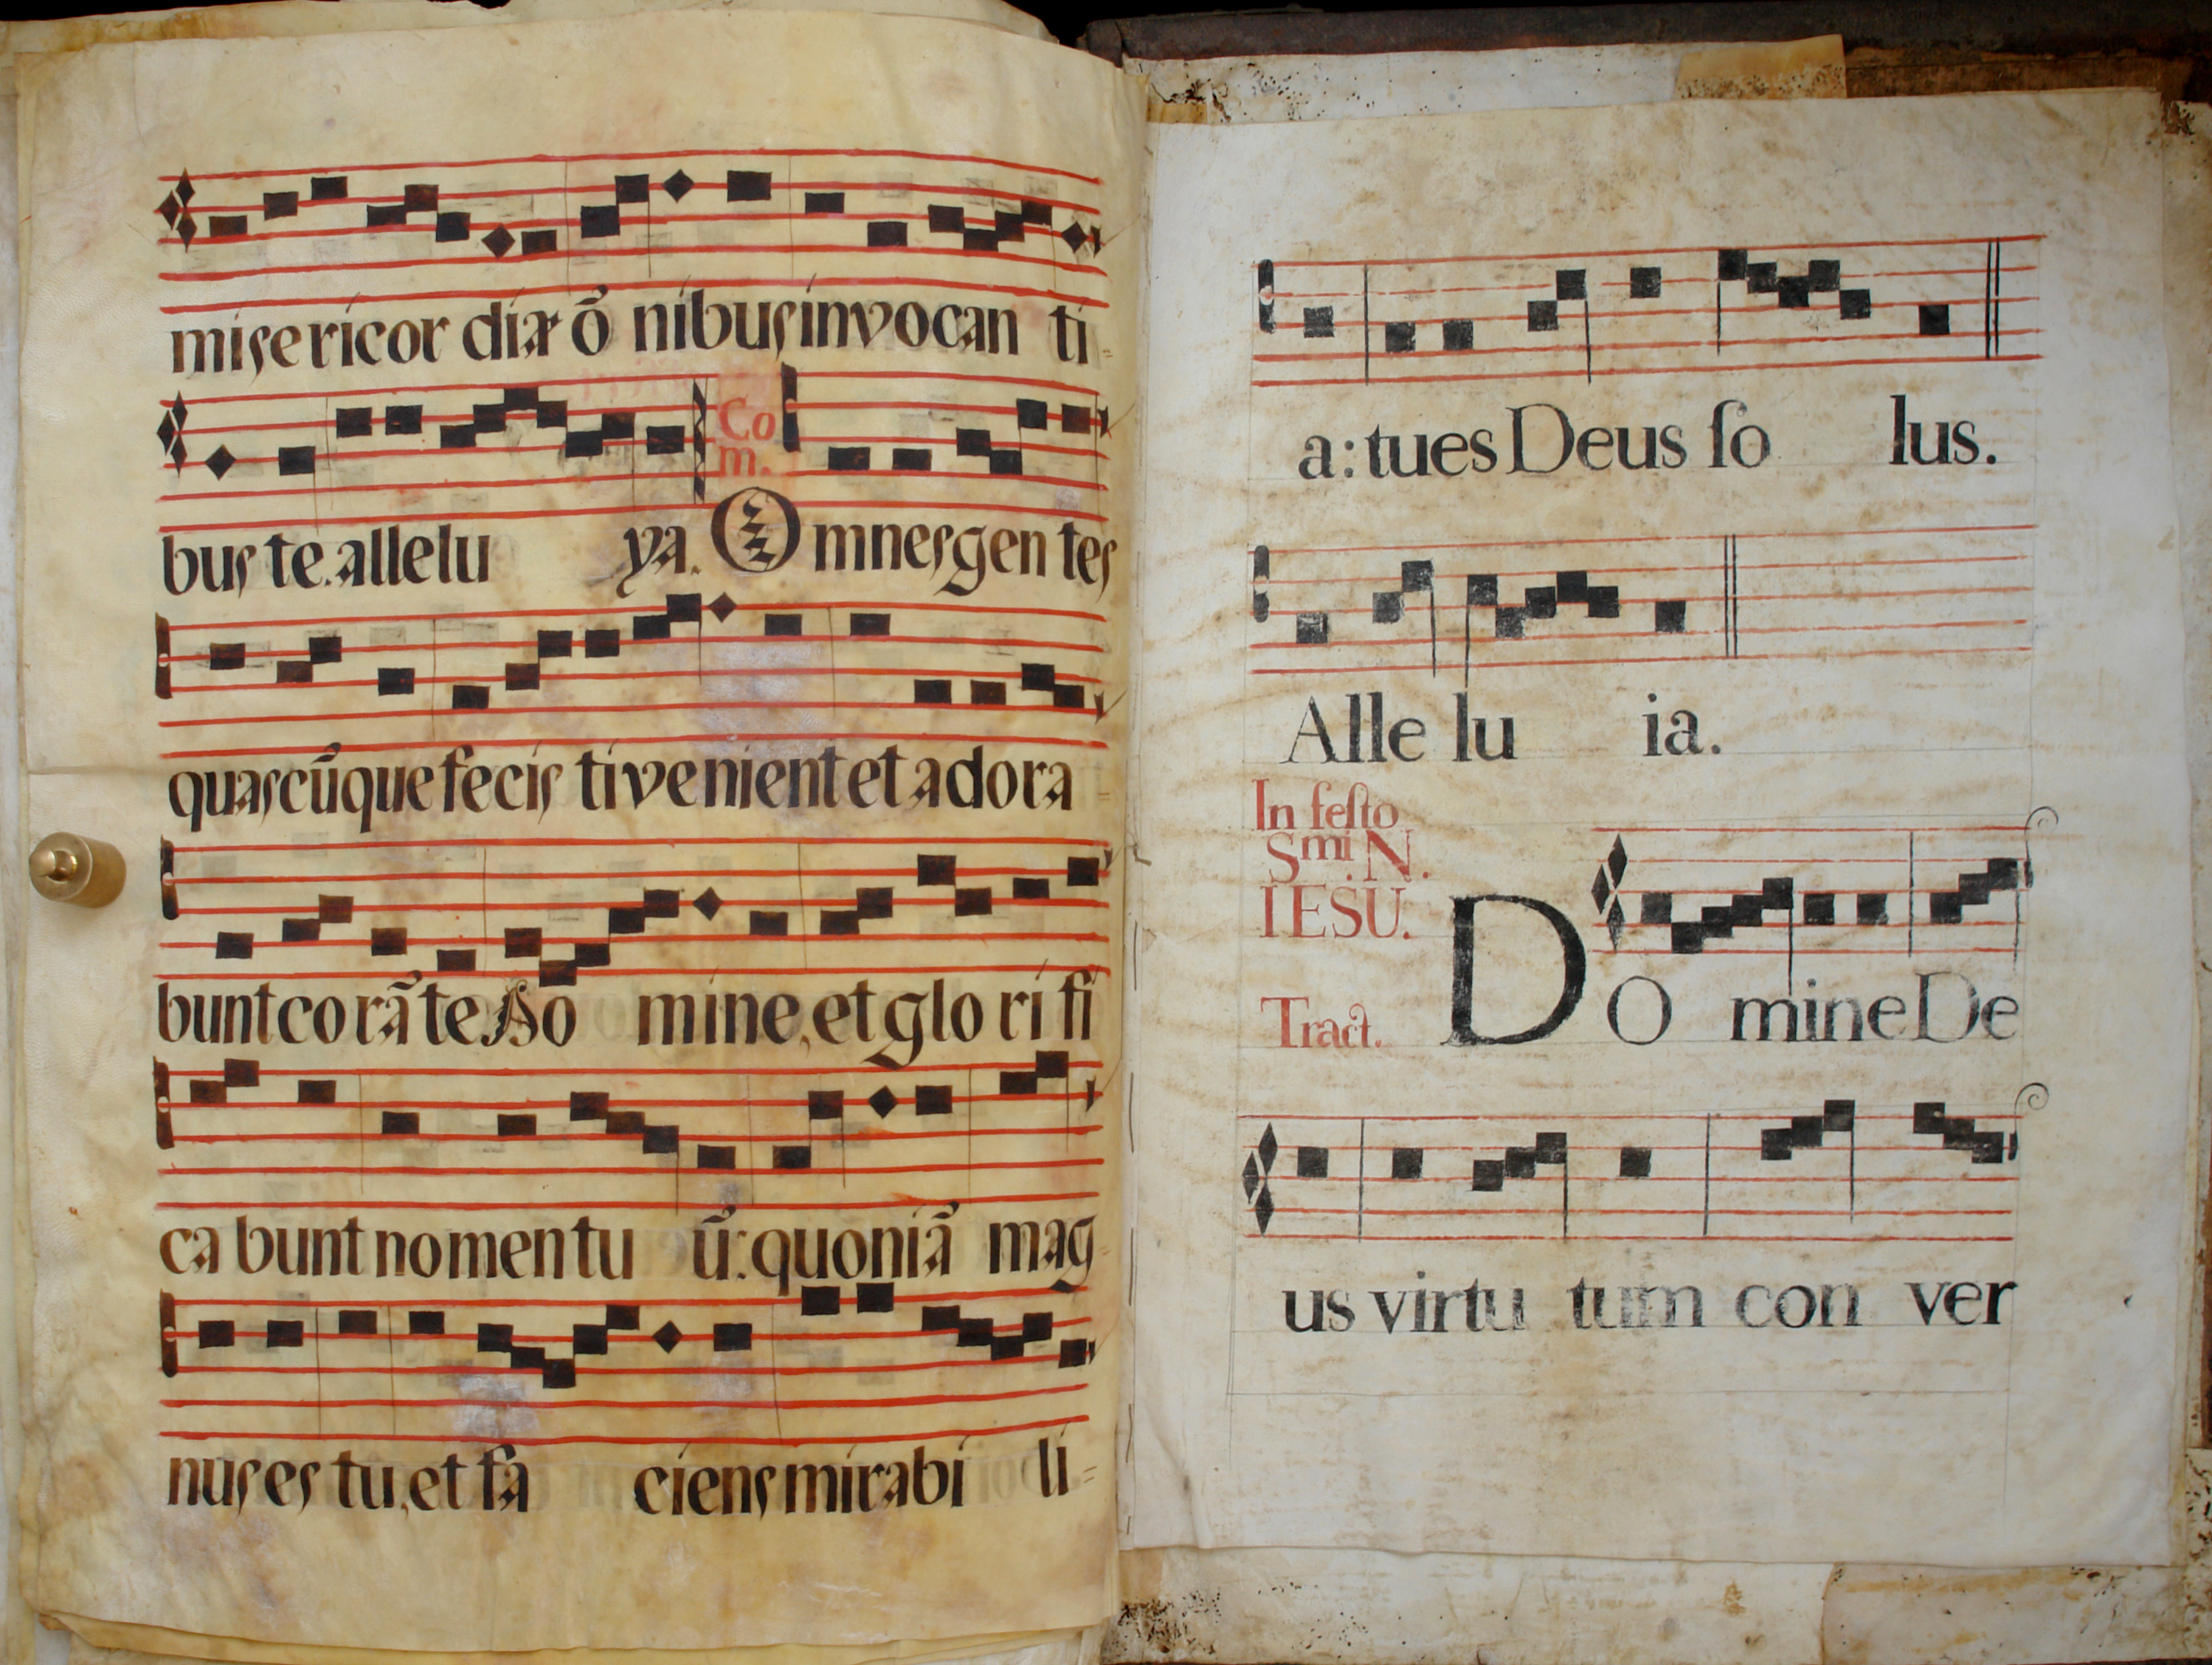 misericordiæ õnibus invocanti=
bus te. alleluya. Com. Omnes gentes
quascũque fecisti venient et adora=
bunt corã te Do mine, et glorifi
cabunt nomen tuũ: quoniã mag=
nus es tu, et faciens mirabili=
a: tu es Deus ſolus.
Alleluia.
In feſto
Smi. N.
IESU.
Tract. DOmine De
us virtutum conver